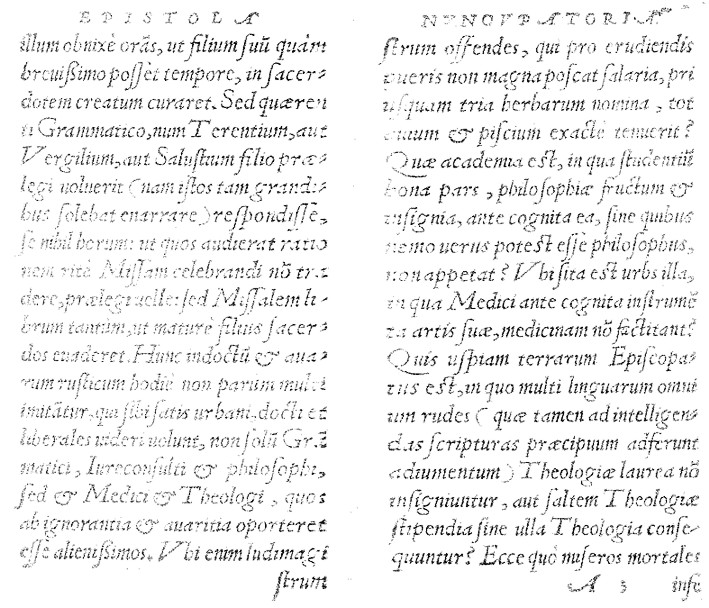 EPISTOLA
illum obnixè orãs, ut filium suũ quàm
breuißimo posset tempore, in sacer-
dotem creatum curaret. Sed quæren
ti Grammatico, num Terentium, aut
Vergilium, aut Salustium filio præ-
legi uoluerit (nam istos tam grandi-
bus solebat enarrare) respondisse,
se nihil horum: ut quos audierat ratio
nem ritè Missam celebrandi nõ tra
dere, prælegi uelle: sed Missalem li-
brum tantùm, ut maturè filius sacer-
dos euaderet. Hunc indoctũ & aua-
rum rusticum hodie non parum multi
imitãtur, qui sibi satis urbani, docti et
liberales uideri uolunt, non solũ Grã
matici, Iureconsulti & philosophi,
sed & Medici & Theologi, quos
ab ignorantia & auaritia oporteret
esse alienißimos. Vbi enim ludimagi
strum
NVNCVPATORIA
strum offendes, qui pro erudiendis
pueris non magna poscat salaria, pri
usquam tria herbarum nomina, tot
auium & piscium exactè tenuerit?
Quæ academia est, in qua studentiũ
bona pars, philosophiæ fructum &
insignia, ante cognita ea, sine quibus
nemo uerus potest esse philosophus,
non appetat? Vbi sita est urbs illa,
in qua Medici ante cognita instrumẽ
ta artis suæ, medicinam nõ factitant?
Quis uspiam terrarum Episcopa-
tus est, in quo multi linguarum omni
um rudes (quæ tamen ad intelligen-
das scripturas præcipuum adferunt
adiumentum) Theologiæ laurea nõ
insigniuntur, aut saltem Theologiæ
stipendia sine ulla Theologia conse-
quuntur? Ecce quò miseros mortales
A 3 infe